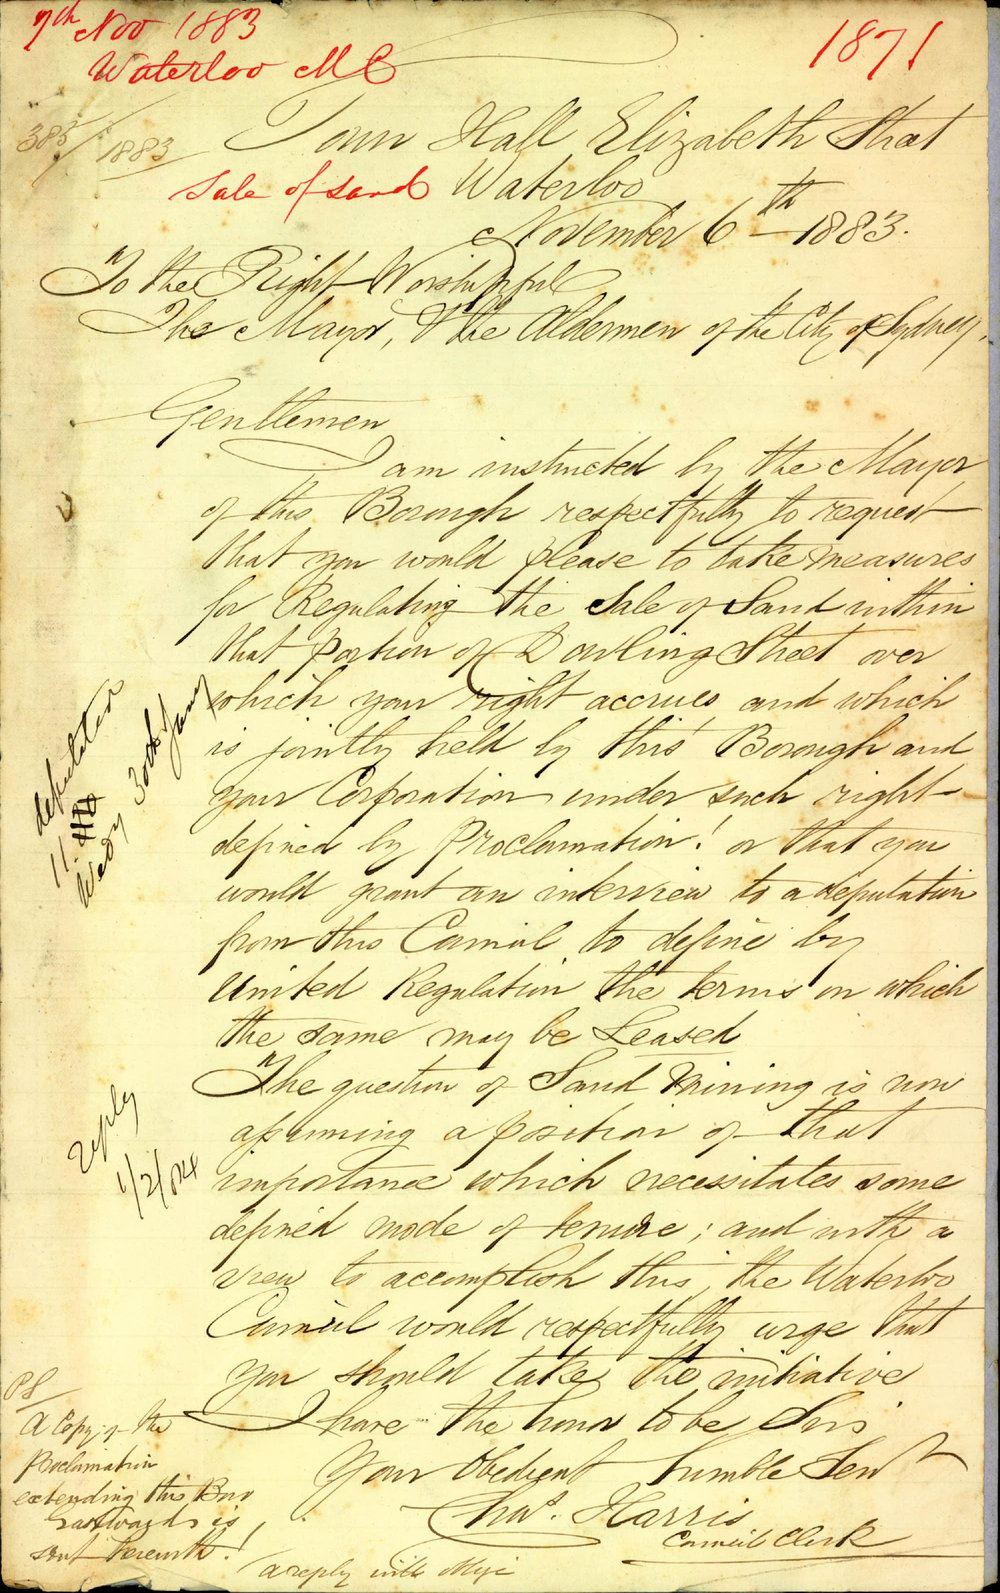 7th Nov 1883
Waterloo M C
1871
383/1883
Town Hall Elizabeth Street
Sale of Sand
Waterloo
November 6th 1883.
To the Right Worshipful
The Mayor, & the Aldermen of the City of Sydney,
Gentlemen
I am instructed by the Mayor
of this Borough respectfully to request
that you would please to take measures
for Regulating the Sale of Sand within
that portion of Dowling Street over
which your right accrues and which
is jointly held by this Borough and
your Corporation under such right
defined by Proclamation! or that you
would grant an interview to a deputation
from this Council to define by
United Regulation the terms on which
the same may be Leased
The question of Sand Mining is now
assuming a position of that
importance which necessitates some
defined mode of tenure; and with a
view to accomplish this, the Waterloo
Council would respectfully urge that
you should take the initiative
I have the honor to be Sirs
Your Obedient humble Servt
Chas. Harris
Council Clerk
deputation
11
Wedy 30th Jany
reply
1/2/84
PS
A Copy of the
Proclamation
extending this Boro
Eastwards is
sent herewith!
a reply will oblige